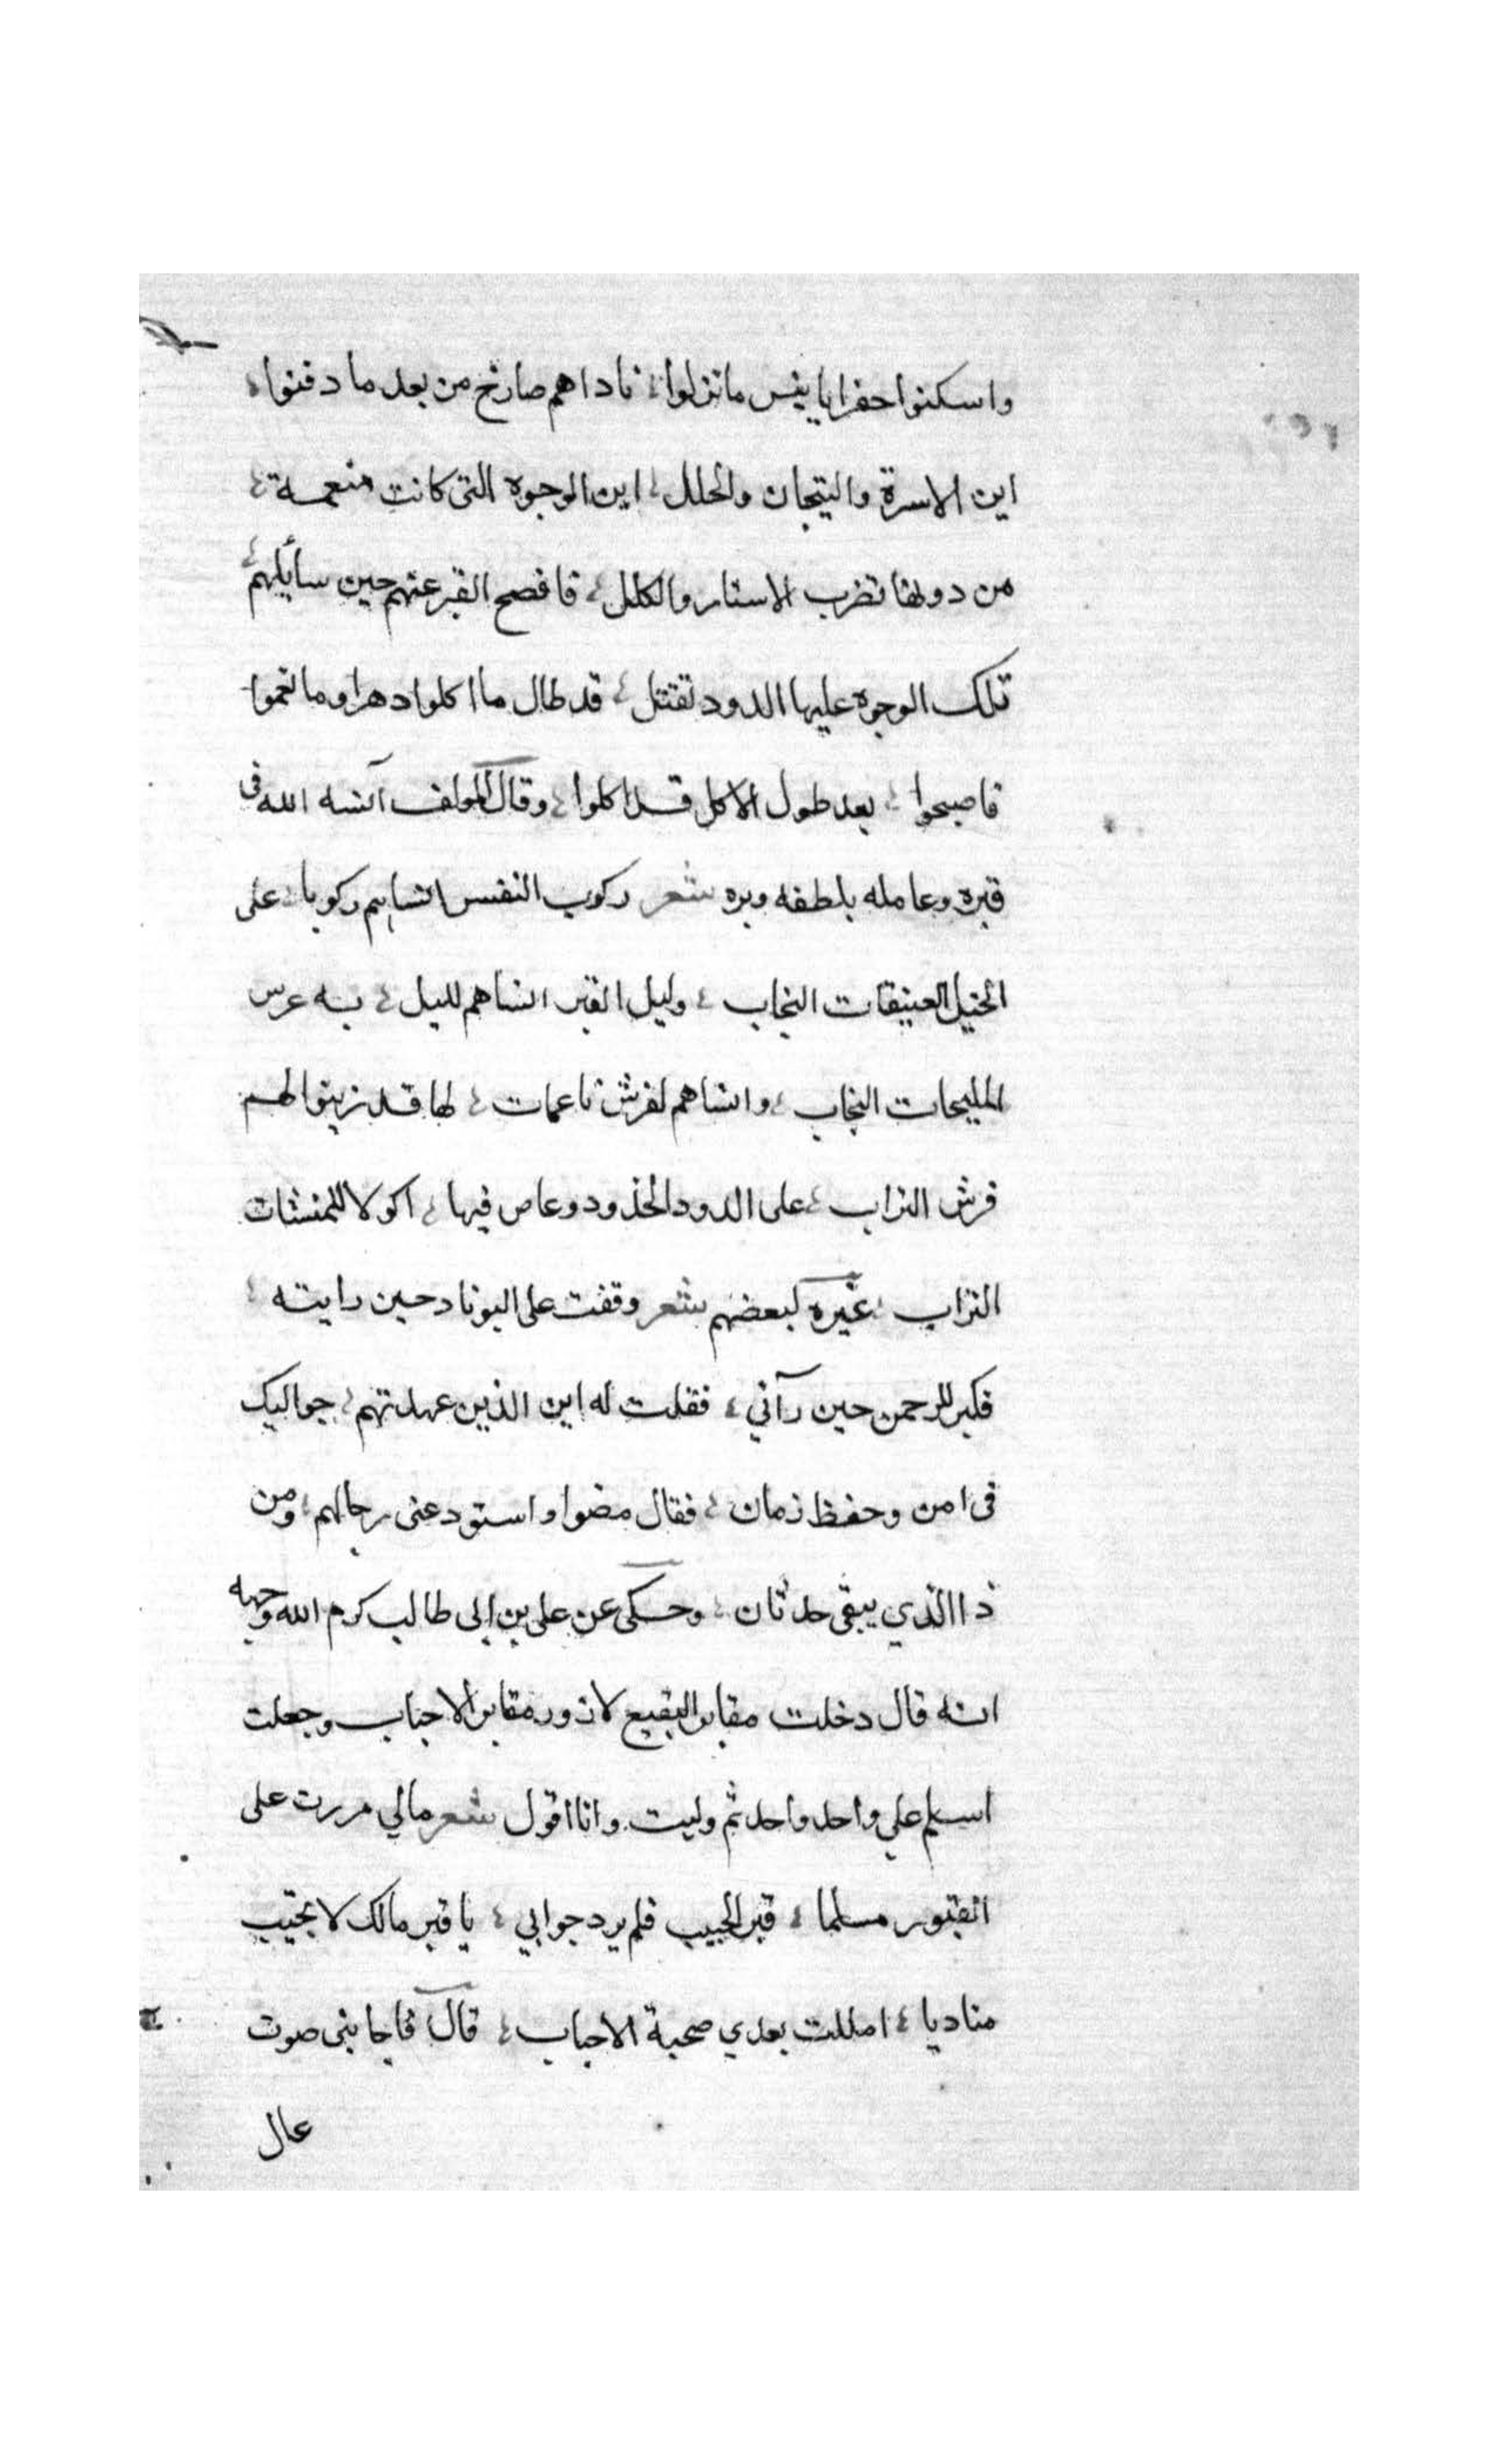 واسكنوا حفرا يا بيس ما نزلوا ناداهم صارخ من بعد ما دفنوا
اين الاسرة والتيجان والحلل اين الوجوه التى كانت منعمة
من دونها تضرب الاستار والكلل فافصح القبر عنهم حين سأيلهم
تلك الوجوه عليها الدود تقتتل قد طال ما اكلوا دهرا وما نعموا
فاصبحوا بعد طول الاكل قد اكلوا وقال المولف آنسه الله فى
قبره وعامله بلطفه وبره شعر ركوب النفس انساهم ركوبا على
الخيل العتيقات النجاب وليل القبر انساهم لليل به عرس
المليحات النجاب وانساهم لفرش ناعمات لها قد زينوا لهم
فرش التراب على الدود الخدود وعاص فيها اكولا
التراب غيره لبعضهم شعر وقفت على حين رايته
فكبر للرحمن حين رآني فقلت له اين الذين عهدتهم حواليك
فى امن وحفظ زمان فقال مضوا واستودعنى رجالهم ومن
ذا الذي يبقى حدثان وحكى عن على بن ابى طالب كرم الله وجهه
انه قال دخلت مقابر البقيع لازور مقابر الاحباب وجعلت
اسلم علي واحد واحد ثم وليت وانا اقول شعر مالي مررت على
القبور مسلما قبر الحبيب فلم يرد جوابي يا قبر مالك لا تجيب
مناديا امللت بعدي صحبة الاحباب قال فاجابنى صوت
عال